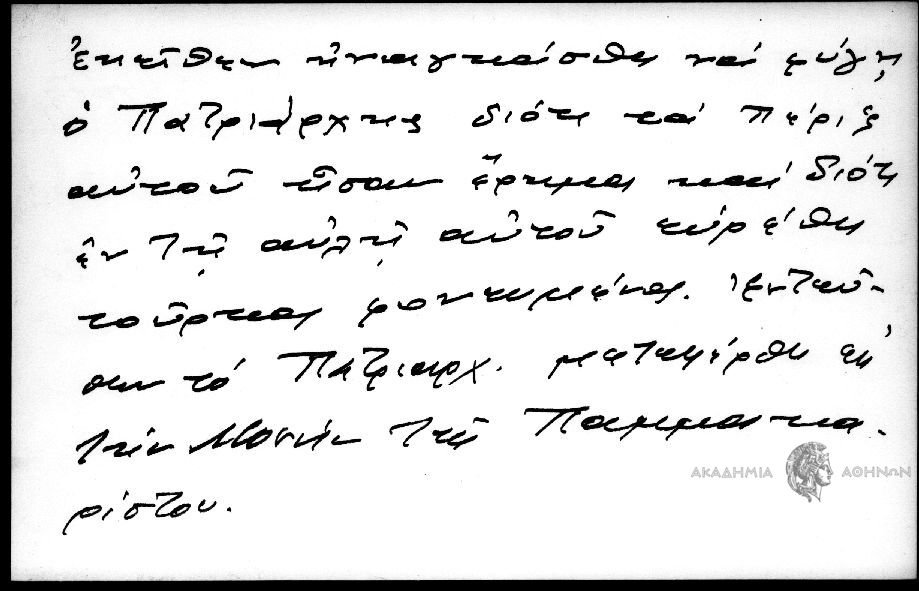 ἐκεῖθεν ἠναγκάσθη νά φύγῃ
ὁ Πατριάρχης διότι τά πέριξ
αὐτοῦ ἦσαν ἔρημα καί διότι
ἐν τῇ αὐλῇ αὐτοῦ εὑρέθη
τοῦρκος φονευμένος. Ἐντεῦ-
θεν τό Πατριαρχ. μετεφέρθη εἰς
τήν Μονήν τῆς Παμμακα-
ρίστου.
ΑΚΑΔΗΜΙΑ ΑΘΗΝΩΝ